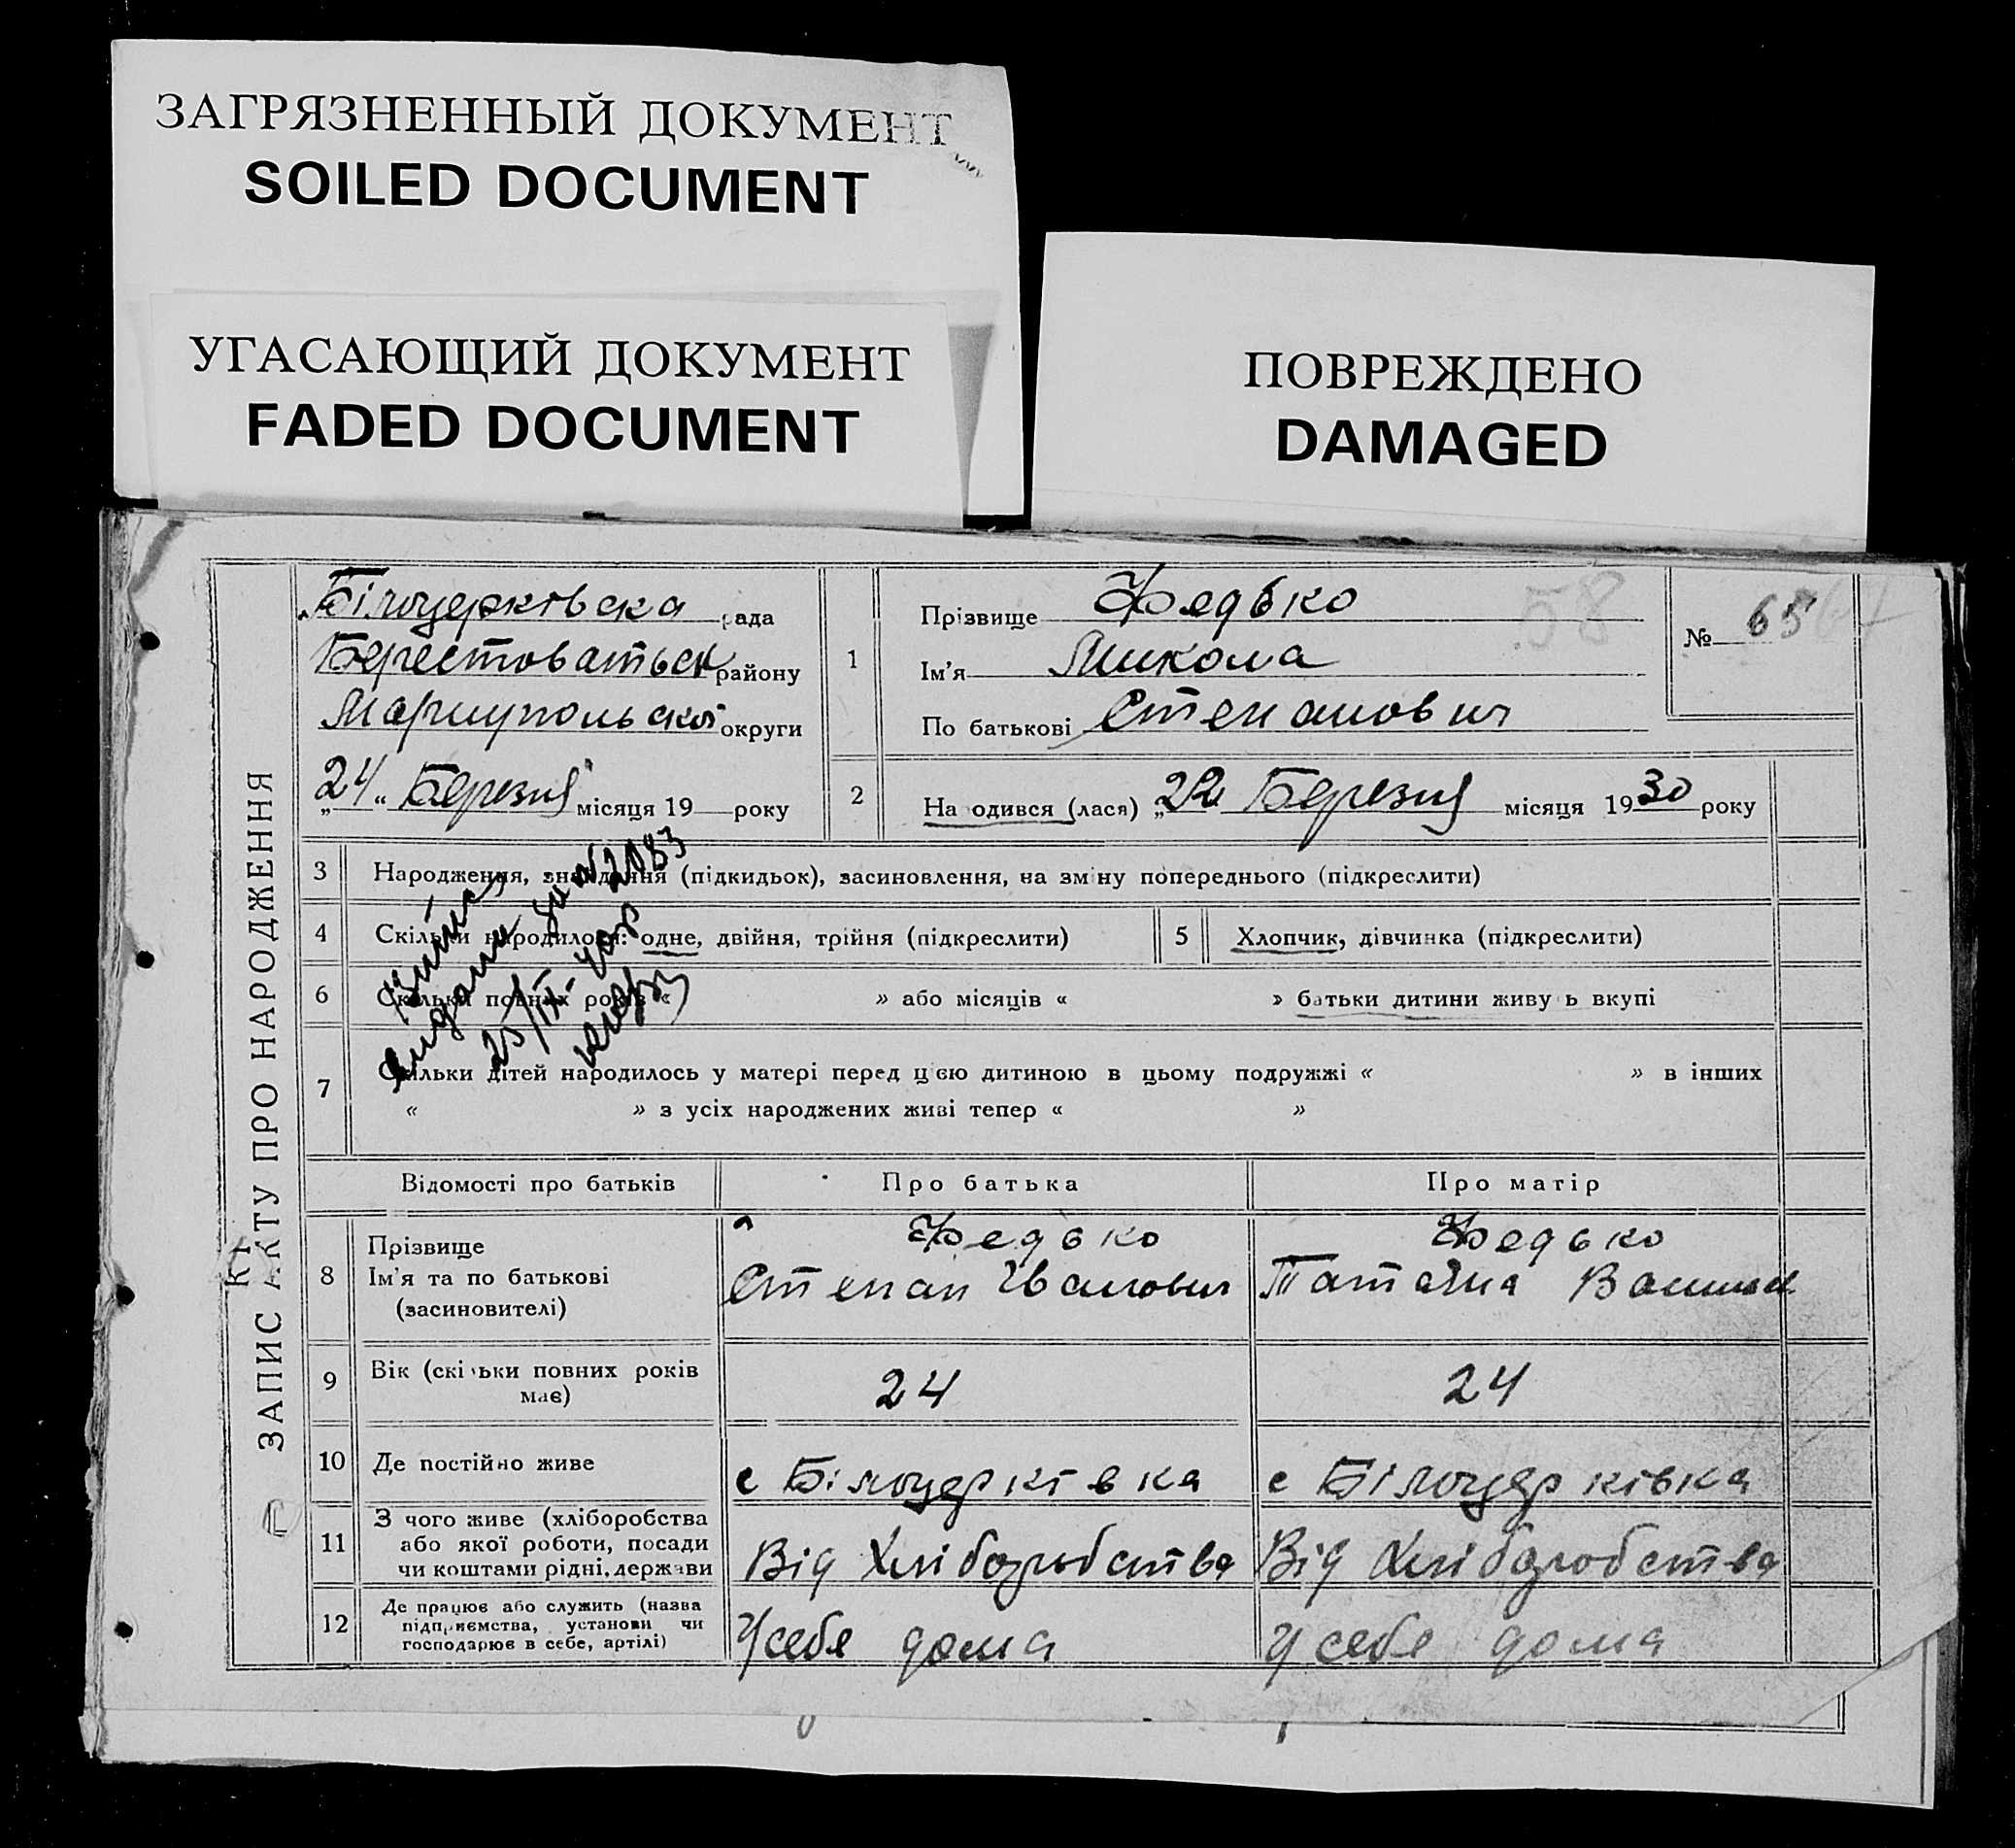 ЗАГРЯЗНЕННЫЙ ДОКУМЕНТ
SOILED DOCUMENT
УГАСАЮЩИЙ ДОКУМЕНТ
FADED DOCUMENT
ПОВРЕЖДЕНО
DAMAGED
ЗАПИС АКТУ ПРО НАРОДЖЕННЯ
Білоцерківска рада
Берестоватьск району
Мариупольской округи
„24“ Березня місяця 19 року
1
Прізвище Федько
Ім'я Микола
По батькові Степанович
58
№ 65 67
2
На одився (лася) „22 Березня місяця 1930 року
3 Народження, знайдення (підкидьок), засиновлення, на зміну попереднього (підкреслити)
4 Скільки народилося: одне, двійня, трійня (підкреслити)
5 Хлопчик, дівчинка (підкреслити)
6 Скільки повних років « » або місяців « » батьки дитини живу ь вкупі
7 Скільки дітей народилось у матері перед цією дитиною в цьому подружжі « » в інших
« » з усіх народжених живі тепер « »
№ 2083
Відомості про батьків Про батька Про матір
8 Прізвище
Ім'я та по батькові
(засиновителі)
Федько
Степан Іванович
Федько
Татяна
9 Вік (скільки повних років
має)
24
24
10 Де постійно живе
с Білоцерківка
с Білоцерківка
11 З чого живе (хліборобства
або якої роботи, посади
чи коштами рідні, держави
Від Хліборобства
Від Хліборобства
12 Де працює або служить (назва
підприємства, установи чи
господарює в себе, артілі)
У себе дома
У себе дома